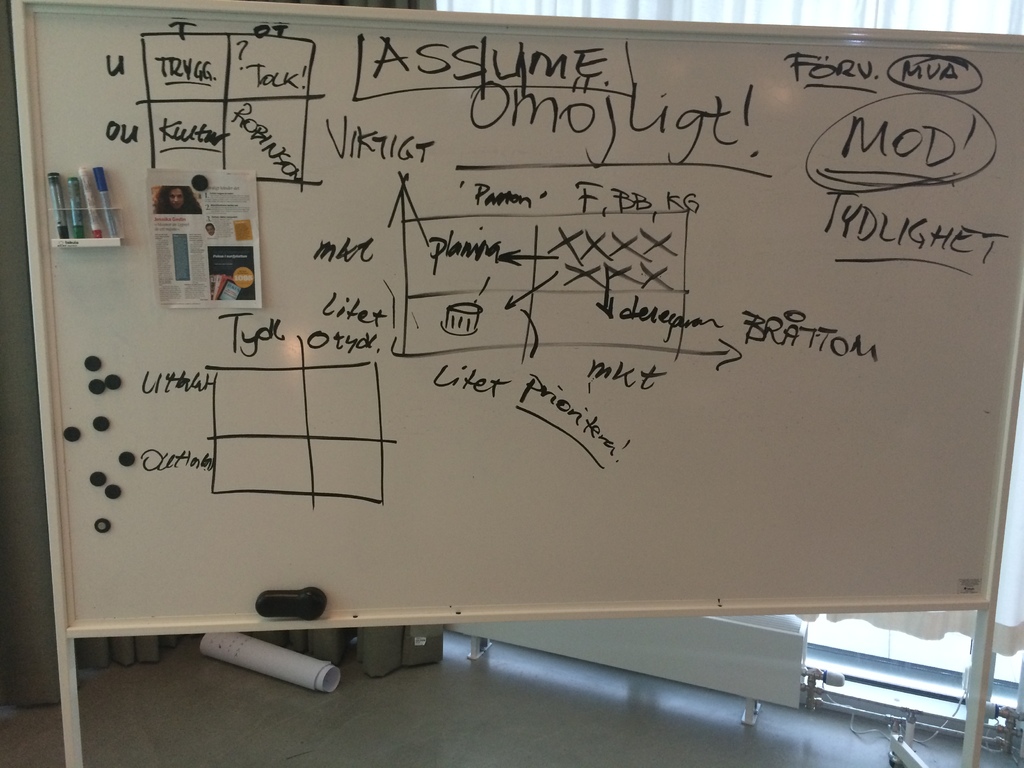 T OT
U TRYGG. ? TOLK!
OU Kultur ROBINSON
ASSUME
Omöjligt!
FÖRV. MVA
MOD!
TYDLIGHET
VIKTIGT
F, BB, KG
mkt planera
Litet delegera BRÅTTOM
Litet mkt
prioritera!
Tydl Otydl.
Uttalat
Outtalat